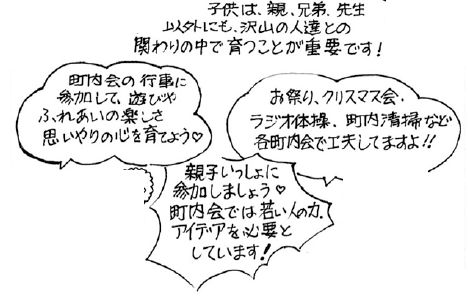 子供は、親、兄弟、先生
以外にも、沢山の人達との
関わりの中で育つことが重要です！
町内会の行事に
参加して、遊びや
ふれあいの楽しさ
思いやりの心を育てよう♡
お祭り、クリスマス会、
ラジオ体操、町内清掃など
各町内会で工夫してますよ!!
親子いっしょに
参加しましょう♡
町内会では若い人の力、
アイデアを必要と
しています！